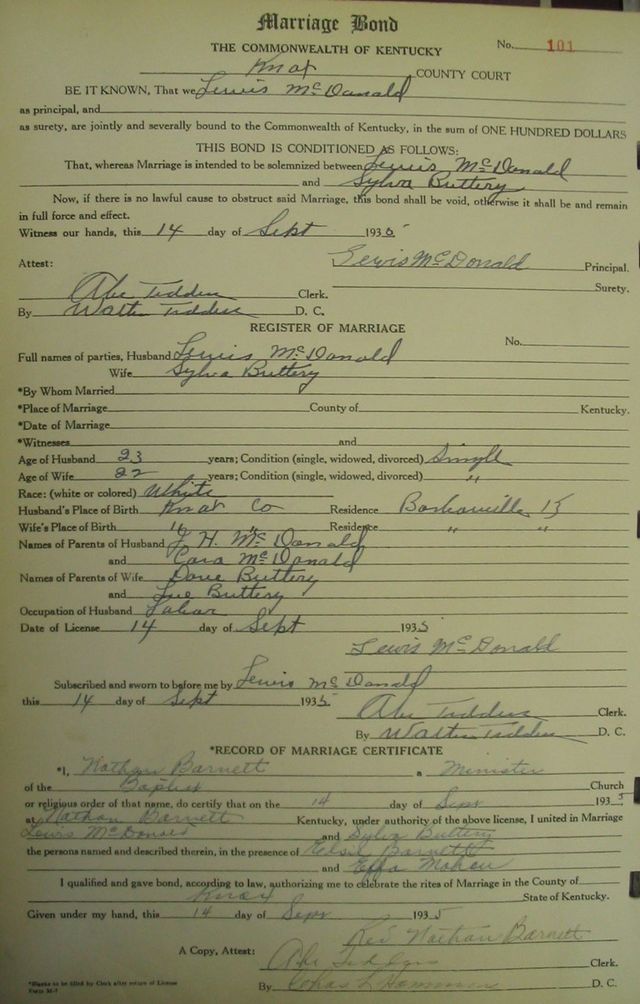 Marriage Bond
THE COMMONWEALTH OF KENTUCKY
No. 101
Knox COUNTY COURT
BE IT KNOWN, That we Lewis McDonald
as principal, and
as surety, are jointly and severally bound to the Commonwealth of Kentucky, in the sum of ONE HUNDRED DOLLARS
THIS BOND IS CONDITIONED AS FOLLOWS:
That, whereas Marriage is intended to be solemnized between Lewis McDonald
and Sylva Buttery
Now, if there is no lawful cause to obstruct said Marriage, this bond shall be void, otherwise it shall be and remain
in full force and effect.
Witness our hands, this 14 day of Sept 1935
Attest: Lewis McDonald Principal.
Surety.
Abe Tedders Clerk.
By Walter Tedders D. C.
REGISTER OF MARRIAGE
No.
Full names of parties, Husband Lewis McDonald
Wife Sylva Buttery
*By Whom Married
*Place of Marriage County of Kentucky.
*Date of Marriage
*Witnesses and
Age of Husband 23 years; Condition (single, widowed, divorced) Single
Age of Wife 22 years; Condition (single, widowed, divorced) "
Race: (white or colored) White
Husband's Place of Birth Knox Co Residence Barbourville Ky
Wife's Place of Birth " " Residence " "
Names of Parents of Husband J. H. McDonald
and Cara McDonald
Names of Parents of Wife Dove Buttery
and Sue Buttery
Occupation of Husband Labor
Date of License 14 day of Sept 1935
Lewis McDonald
Subscribed and sworn to before me by Lewis McDonald
this 14 day of Sept 1935
Abe Tedders Clerk.
By Walter Tedders D. C.
*RECORD OF MARRIAGE CERTIFICATE
*I, Nathan Barnett a Minister
of the Baptist Church
or religious order of that name, do certify that on the 14 day of Sept 1935
at Nathan Barnett Kentucky, under authority of the above license, I united in Marriage
Lewis McDonald and Sylva Buttery
the persons named and described therein, in the presence of Barnett
and Effa
I qualified and gave bond, according to law, authorizing me to celebrate the rites of Marriage in the County of
Knox State of Kentucky.
Given under my hand, this 14 day of Sept 1935
Rev Nathan Barnett
A Copy, Attest: Abe Tedders Clerk.
By Hammons D. C.
*Blanks to be filled by Clerk after return of License
Form M-7